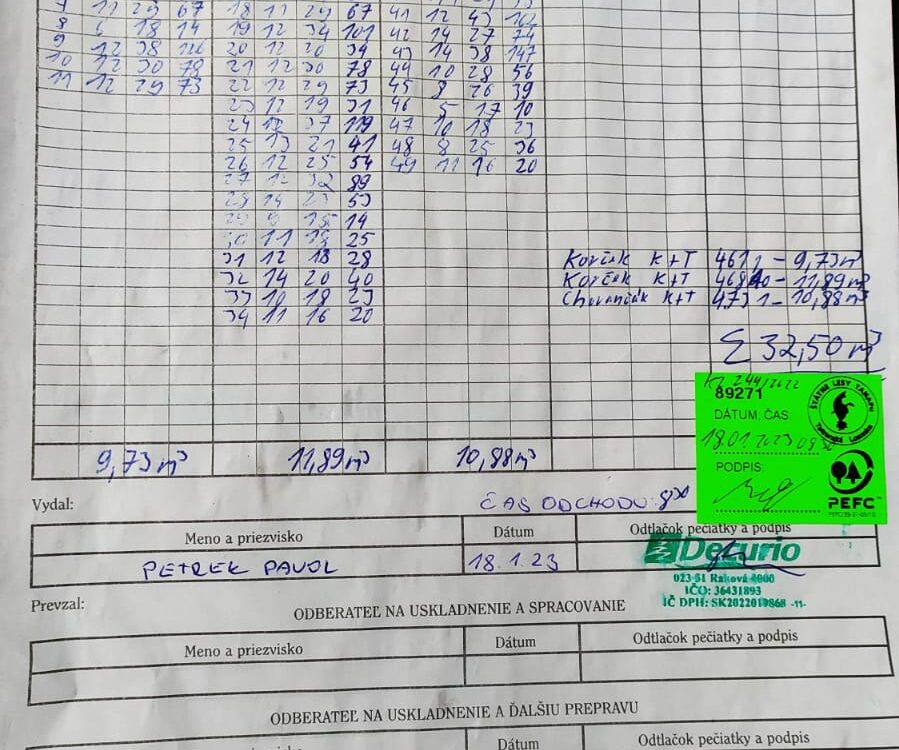 7 11 29 67 18 11 29 67 41 12 43
8 18 14 19 12 34 101 42 14 27 74
9 12 38 126 20 12 20 34 43 14 38 147
10 12 30 78 21 12 30 78 44 10 28 56
11 12 29 73 22 12 29 73 45 8 26 39
23 12 19 31 46 5 17 10
24 37 119 47 10 18 23
25 13 21 41 48 8 25 36
26 12 25 54 49 11 16 20
27 12 32 89
28 14 23 53
29 9 15 14
30 11 25
31 12 18 28
32 14 20 40
33 10 18 23
34 11 16 20
Korčák K+T 9,73m³
Korčák K+T 11,89m³
K+T 10,88m³
Σ 32,50 m³
244/2022
89271
ŠTÁTNE LESY TANAPU
Tatranská Lomnica
DÁTUM, ČAS
18.01.2023
PODPIS:
PEFC
9,73m³ 11,89m³ 10,88m³
Vydal:
ČAS ODCHODU:
Meno a priezvisko Dátum Odtlačok pečiatky a podpis
PETREK PAVOL 18.1.23
Demurio
023 51 Raková
IČO: 36431893
IČ DPH: SK2022019868 -11-
Prevzal:
ODBERATEĽ NA USKLADNENIE A SPRACOVANIE
Meno a priezvisko Dátum Odtlačok pečiatky a podpis
ODBERATEĽ NA USKLADNENIE A ĎALŠIU PREPRAVU
Meno a priezvisko Dátum Odtlačok pečiatky a podpis